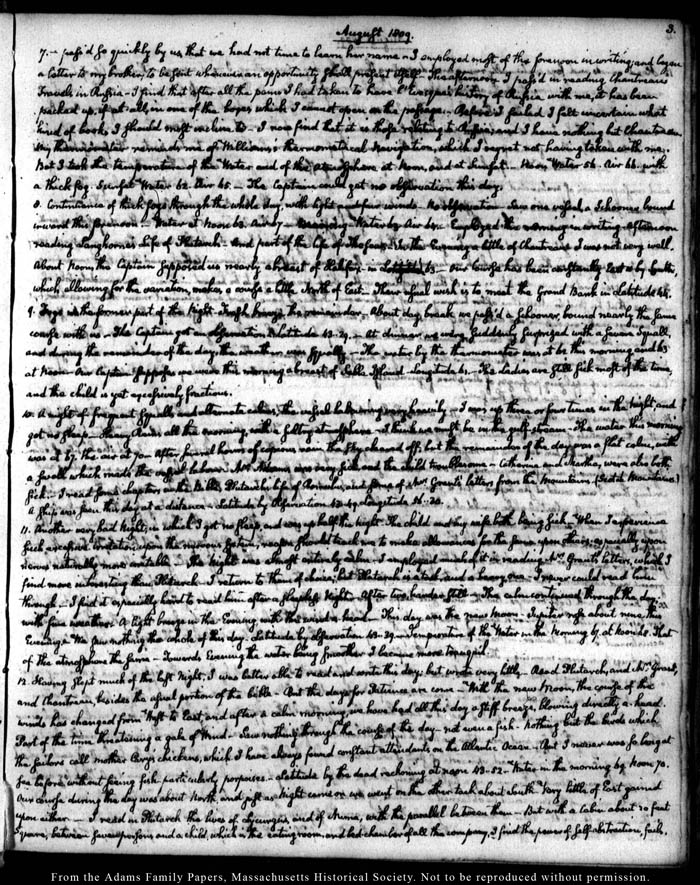 August 1809.
3.
7. — pass'd so quickly by us, that we had not time to learn her name — I employed most of the forenoon in writing, and began
a letter to my brother, to be sent whenever an opportunity shall present itself. The afternoon I pass'd in reading Chantreau's
Travels in Russia — I find that after all the pains I had taken to have l'Evesque's history of Russia with me, it has been
packed up, if at all, in one of the boxes which I cannot open on the passage. Before I sailed I felt uncertain what
kind of books I should most incline to — I now find that it is those relating to Russia; and I have nothing but Chantreau.
My thermometer reminds me of Williams's thermometrical Navigation, which I regret not having taken with me.
But I took the temperature of the Water and of the atmosphere at Noon, and at Sunset. — Noon, Water 56. Air 66. with
a thick fog. Sunset Water 62. Air 65. — The Captain could get no observation this day.
8. Continuance of thick fogs through the whole day, with light and fair winds. No observation. Saw one vessel, a Schooner bound
inward this forenoon — Water at Noon 63. Air 67. — Evening Water 62 Air 64. — Employed the morning in writing. Afternoon
reading Langhorne's Life of Plutarch. And part of the life of Theseus. In the Evening a little of Chantreau. I was not very well.
About Noon the Captain supposed us nearly abreast of Halifax in 63 — Our Course has been constantly East by South,
which, allowing for the variation, makes a course a little North of East. Their wish is to meet the Grand Bank in Latitude 44.
9. Fogs in the former part of the Night. Fresh breeze, the remainder. About day-break we pass'd a Schooner, bound nearly the same
course with us — The Captain got an observation. Latitude 43-29. — At dinner we were suddenly surprized with a severe Squall,
and during the remainder of the day, the weather was squally. — The water by the thermometer was at 60 this morning and 63
at Noon. Our Captain supposes we were this morning abreast of Sable Island — Longitude 61. — The Ladies are still sick most of the time,
and the child is yet excessively fractious.
10. A night of frequent squalls and alternate calms, the vessel labouring very heavily — I was up three or four times in the night, and
got no sleep — Heavy Rains all the morning, with a sultry atmosphere. — I think we must be in the gulf-stream. The water this morning
was at 67. the air at 70. After several hours of copious rain the sky cleared off, but the remainder of the day was a flat calm, with
a swell which made the vessel labour. Mrs. Adams was very sick and the child troublesome — Catherine and Martha, were also both
sick. I read some chapters in the Bible, Plutarch's life of Romulus, and some of Mrs. Grant's letters from the Mountains. (Scotch Mountains)
A Ship was seen this day at a distance. Latitude by Observation 43-49. Longitude 58-20.
11. Another very bad Night, in which I got no sleep, and was up half the night. The child and my wife both being sick — When I experience
such excessive irritation upon the nervous system, reason should teach me to make allowances for the same upon others, especially upon
nerves naturally more irritable — The Night was almost entirely calm. I employed much of it in reading Mrs. Grant's letters, which I
find more interesting than Plutarch. I return to them of choice; but Plutarch is a task, and a heavy one — I never could read him
through — I find it especially hard to read him after a sleepless Night. After two, harder still. — The calm continued through the day,
with fine weather. A light breeze in the Evening with the wind a head. — This day was the new Moon. Jupiter rose about nine this
Evening. We saw nothing the whole of this day. Latitude by observation 43-29. Temperature of the Water in the Morning 67. at Noon 70. That
of the atmosphere the same — Towards Evening the water being smoother I became more tranquil.
12. Having slept much of the last Night, I was better able to read and write this day; but wrote very little — Read Plutarch, and Mrs. Grant,
and Chantreau, besides the usual portion of the bible — But the days for Patience are come — With the new Moon, the course of the
winds has changed from West to East, and after a calm morning, we have had all this day a stiff breeze, blowing directly a-head.
Part of the time threatening a gale of Wind. Saw nothing through the course of the day. not even a fish. Nothing but the birds which
the sailors call mother Carey's chickens, which I have always found constant attendants on the Atlantic Ocean. — But I never was so long at
sea before without seeing fish, particularly porpoises. — Latitude by the dead reckoning at noon 43-52. Water in the morning 67. Noon 70.
Our course during the day was about North, and just as Night came on we went on the other tack about South. Very little of East gained
upon either — I read in Plutarch the lives of Lycurgus, and of Numa, with the parallel between them — But with a cabin about 10 feet
square, between seven persons and a child, which is the eating room, and bed chamber of all the company, I find the power of self-abstraction, fails.
From the Adams Family Papers, Massachusetts Historical Society. Not to be reproduced without permission.